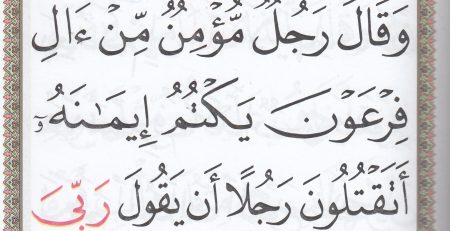 وَقَالَ رَجُلٌ مُّؤْمِنٌ مِّنْ ءَالِ
فِرْعَوْنَ يَكْتُمُ إِيمَٰنَهُۥٓ
أَتَقْتُلُونَ رَجُلًا أَن يَقُولَ رَبِّىَ